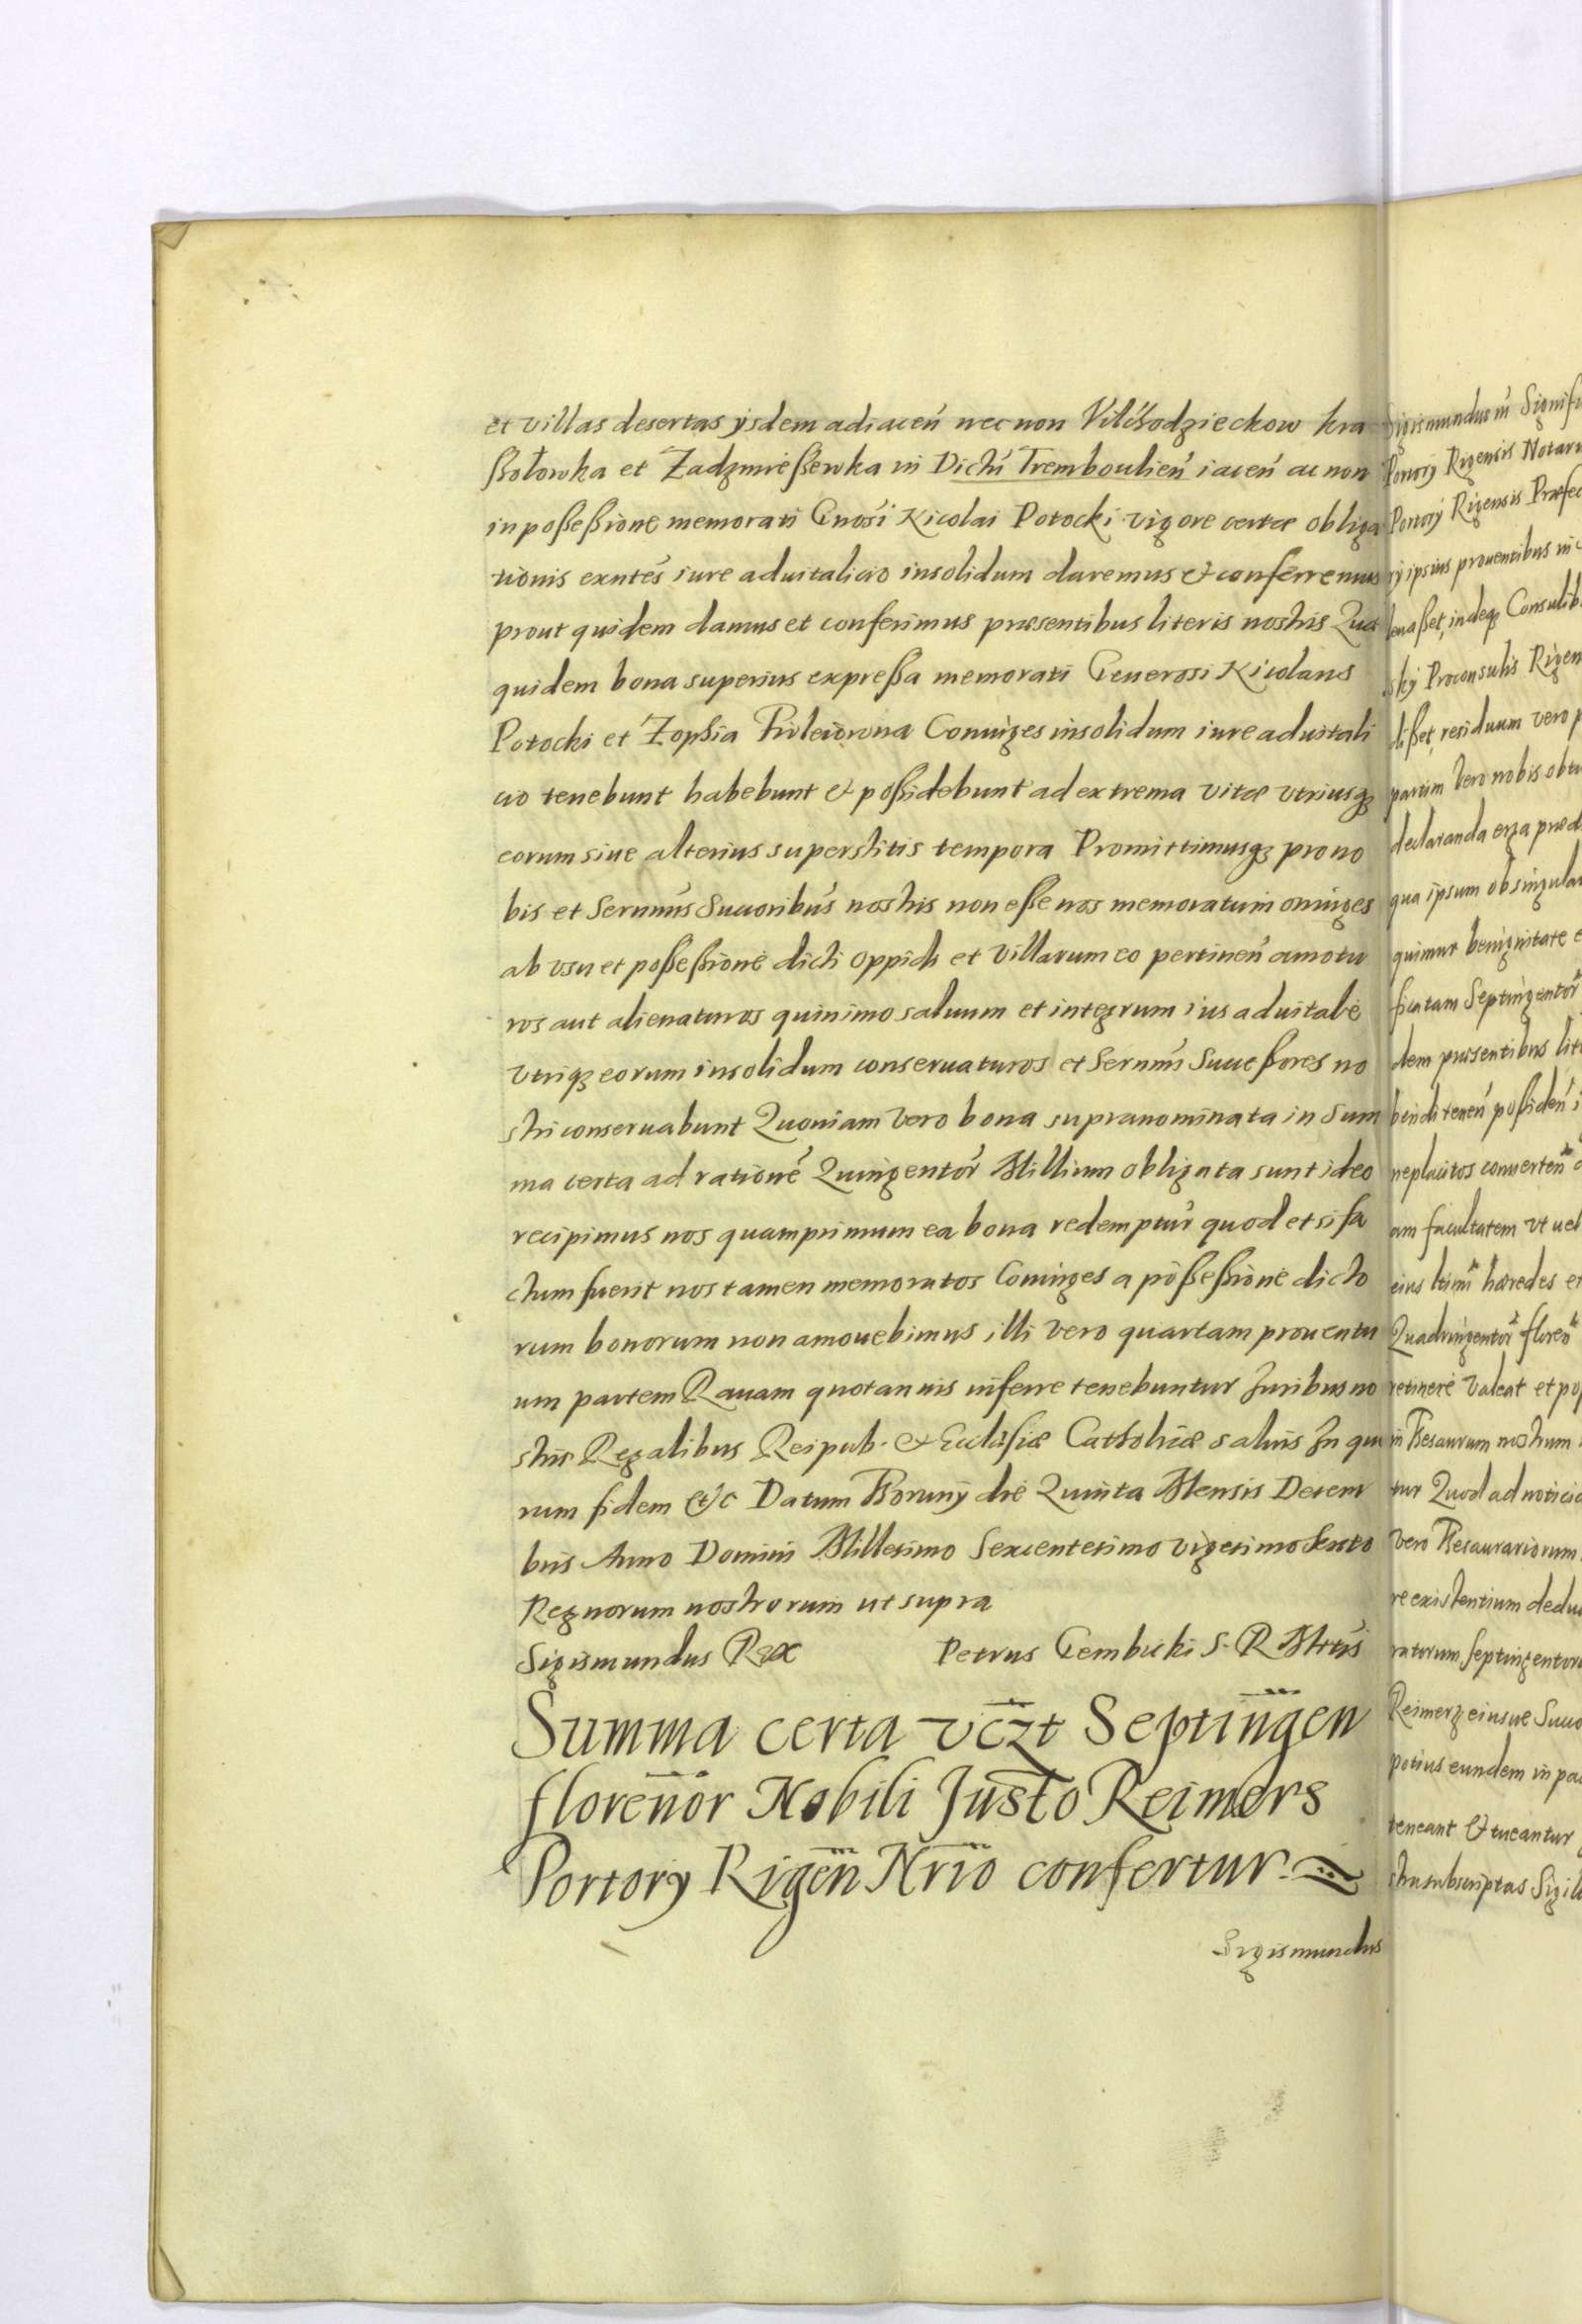 et villas desertas ysdem adiacen̄ nec non Vilchodzieckow kra
ßołowka et Zadzmießewka in Dictū Trembouliēn iacēn ac non
in poßeßione memorati Gnosi Nicolai Potocki vigore certæ obliga
tionis exntēs iure aduitalicio insolidum daremus & conferremus
prout quidem damus et conferimus præsentibus literis nostris Quæ
quidem bona superius expreßa memorati Generosi Nicolaus
Potocki et Zophia Coniuges insolidum iure aduitali
cio tenebunt habebunt & poßidebunt ad extrema vitæ vtriusqȝ
eorum siue alterius superstitis tempora Promittimusqȝ pro no
bis et Sernmīs Succoribūs nostris non eße nos memoratum coniuges
ab vsu et poßeßionē dicti oppidi et villarum eo pertinēn amotu
ros aut alienaturos quinimo saluum et integrum ius aduitalē
vtriqȝ eorum insolidum conseruaturos et Sernmī Succeßores no
stri conseruabunt Quoniam vero bona supranominata in Sum
ma certa ad rationē Quingentor̄ Millium obligata sunt ideo
recipimus nos quamprimum ea bona redemptur̄ quod etsi fa
ctum fuerit nos tamen memoratos Coniuges a poßeßionē dicto
rum bonorum non amouebimus illi vero quartam prouentu
um partem Rauam quotannis inferre tenebuntur Juribus no
stris Regalibus Reipub. & Ecclesiæ Catholicæ saluis In quo
rum fidem &c Datum Thoruny die Quinta Mensis Decem
bris Anno Domini Millesimo Sexcentesimo vigesimo Sexto
Regnorum nostrorum ut supra
Sigismundus Rex Petrus Gembicki S. R Mtis
Summa certa vczt Septingen
florenor Nobili Justo Reimers
Portorÿ Rigen Nrio confertur.
Sigismundus
Sigismundus
Portorij Rigensis Notar
Portorij Rigensis Præfec
ij ipsius prouentibus in
indeqȝ Consulib
Proconsulis Rigen
dißet, residuum vero p
partim vero nobis
declaranda erga præd
qua ipsum ob singular
quimur benignitate e
ficatam Septingentor̄
dem præsentibus lit
bendi tenēn poßidēn
neplacitos conuertēn
am facultatem vt uel
eius ltimī hæredes et
Quadringentor̄ floren
retinerē valeat et
in Thesaurum nostrum
tur Quod ad noticia
vero Thesaurariorum
re existentium dedu
ratorum septingentoru
Reimerz eiusue Succ
potius eundem in pac
teneant & tueantur
stra subscriptas Sigil